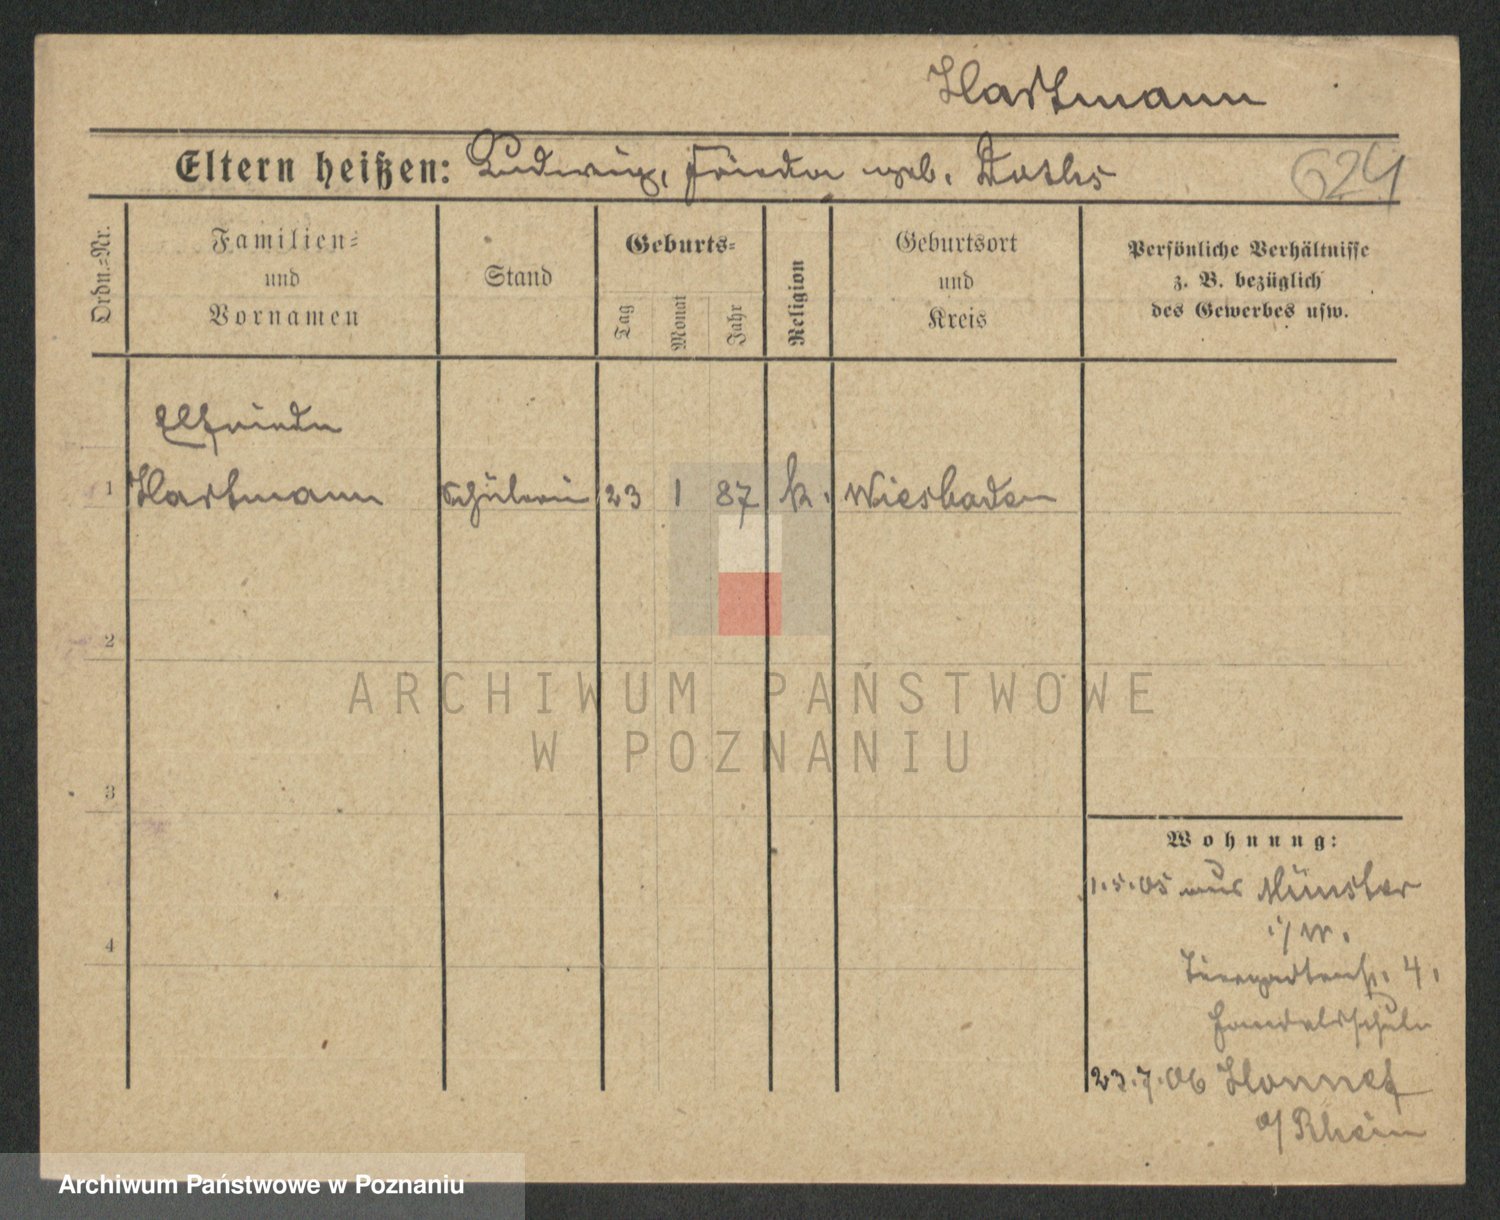 Hartmann
Eltern heißen: Ludwig, Frieda geb.
624
Ordn.=Nr.
Familien=
und
Vornamen
Stand
Geburts=
Tag
Monat
Jahr
Religion
Geburtsort
und
Kreis
Persönliche Verhältnisse
z. B. bezüglich
des Gewerbes usw.
Elfriede
1 Hartmann Schülerin 23 1 87 k. Wiesbaden
2
ARCHIWUM PAŃSTWOWE
W POZNANIU
3
Wohnung:
1.5.05 aus Münster
i/W.
4
Tiergartenstr. 4.
Handelsschule
23.7.06 Honnef
a/Rhein
Archiwum Państwowe w Poznaniu